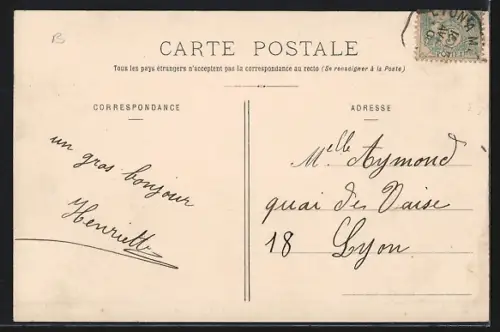 B
LYON R. M
CARTE POSTALE
Tous les pays étrangers n'acceptent pas la correspondance au recto (Se renseigner à la Poste)
CORRESPONDANCE
ADRESSE
un gros bonjour
Henriette
Melle Aymond
quai de Vaise
18 Lyon